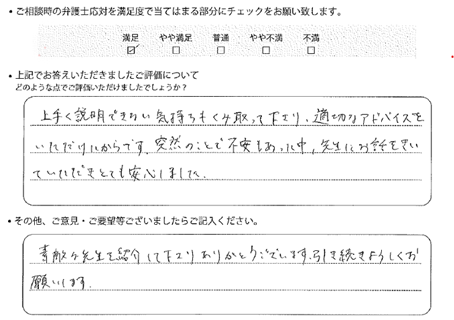 ・ご相談時の弁護士応対を満足度で当てはまる部分にチェックをお願い致します。
満足 やや満足 普通 やや不満 不満
・上記でお答えいただきましたご評価について
どのような点でご評価いただけましたでしょうか？
上手く説明できない気持ちもくみ取って下さり、適切なアドバイスを
いただけたからです。突然のことで不安もあった中、先生にお話をきい
ていただきとても安心しました。
・その他、ご意見・ご要望等ございましたらご記入ください。
素敵な先生を紹介して下さりありがとうございます。引き続きよろしくお
願いします。